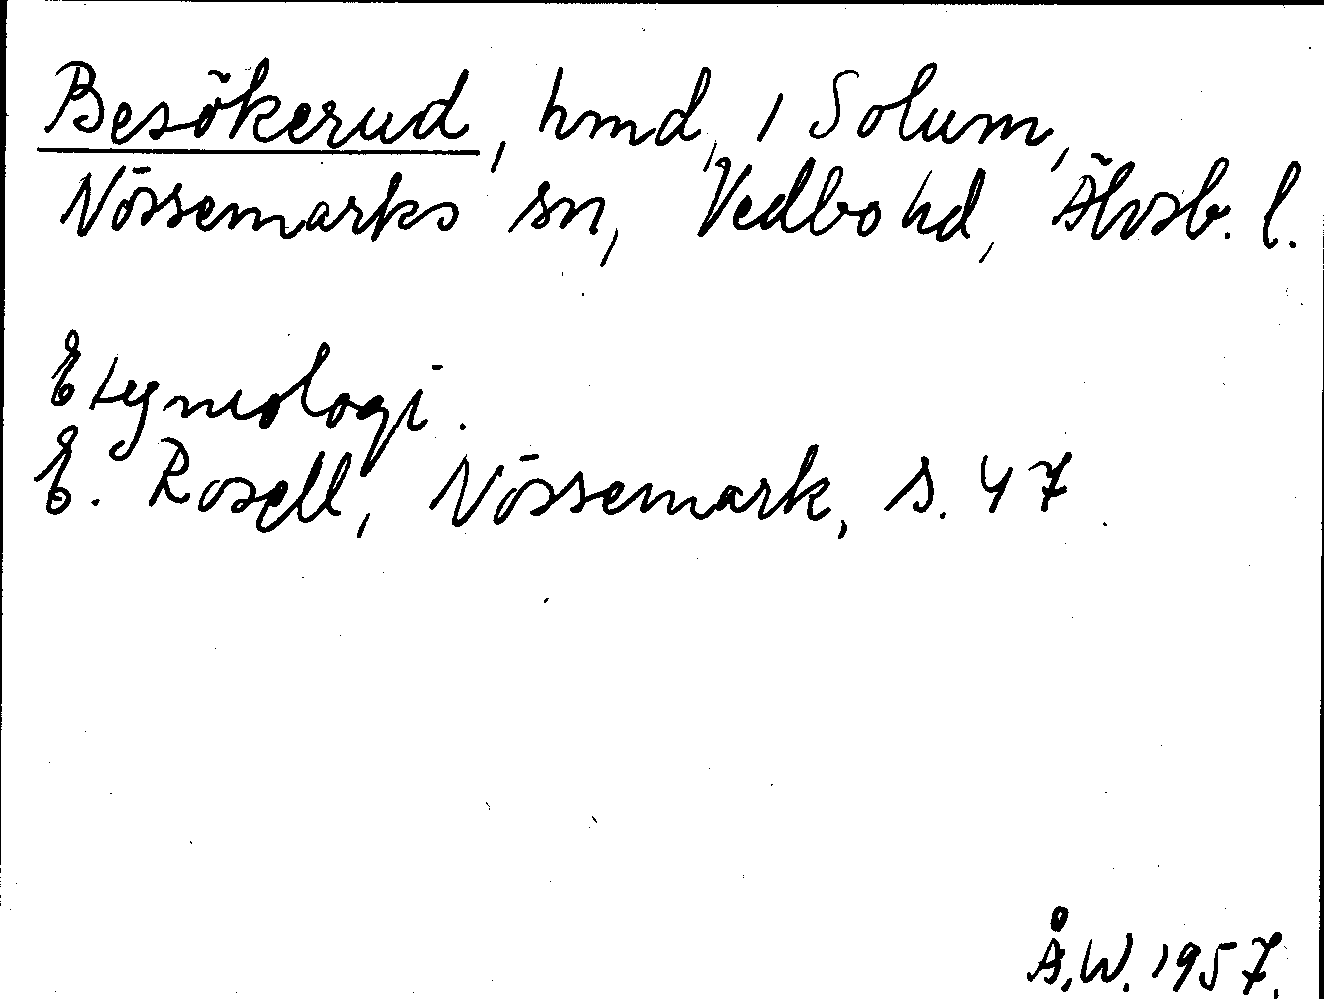 Besökerud, hmd, i Solum,
Nössemarks sn, Vedbo hd, Älvsb. l.
Etymologi.
E. Rosell, Nössemark, s. 47
Å.W. 1957.